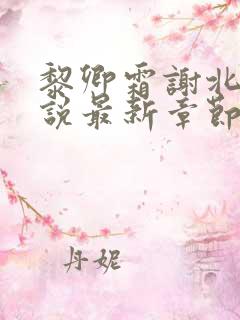 黎卿霜謝北
說最新章節
丹妮